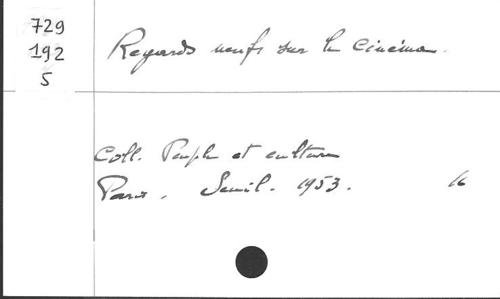 729
192
5
Regards neufs sur le cinéma.
Coll. Peuple et culture
Paris, Seuil. 1953.